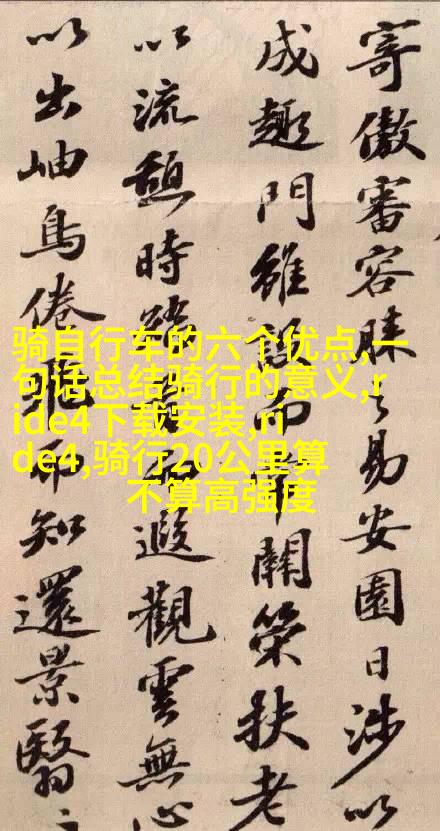 寄傲審容膝之易安園日涉以
成趣門雖設而常關策扶老
以流憩時矯首而遐觀雲無心
以出岫鳥倦飛而知還景翳
骑自行车的六个优点,一
句话总结骑行的意义,r
ide4下载安装,ri
de4,骑行20公里算
不算高强度